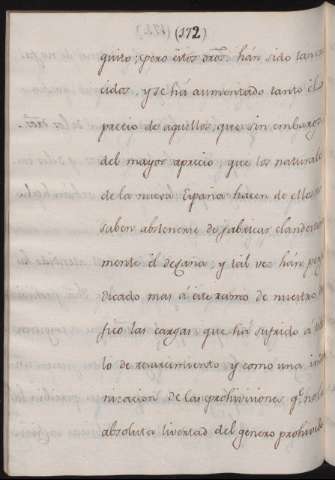 (172)
quito; pero estos dros. han sido tan cre
cidos, y se há aumentado tanto el
precio de aquellos, que sin embargo
del mayor aprecio, que los natural
de la nueva España hacen de ellos, no
saben abstenerse de fabricar clandestin
mente el de Caña, y tal vez hán per
dicado mas á este ramo de nuestro
fico las cargas, que há sufrido a
lo de resarcimiento, y como una in
nizacion de las prohiviciones, qe. no la
absoluta livertad del genero prohivido